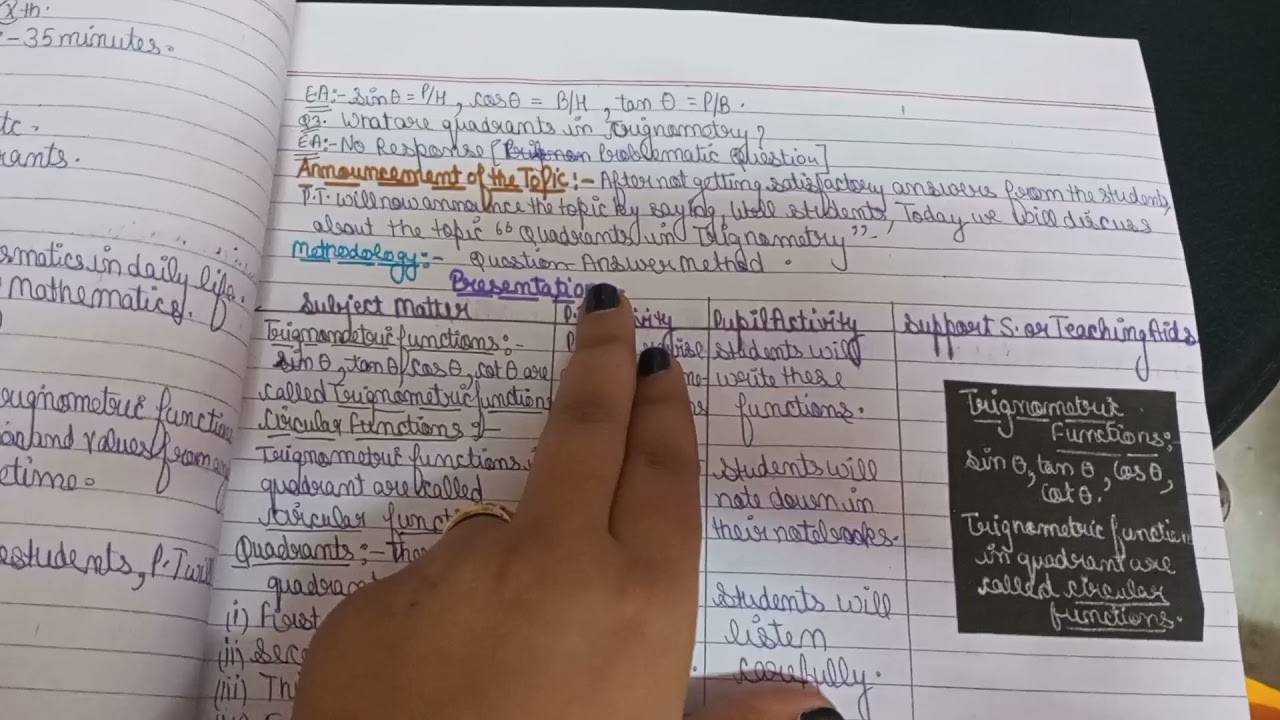 8th.
:- 35 minutes.
tc.
rants.
smatics in daily life.
Mathematics.
rignometric function
and values from any
etime.
students, P.T will
EA:- sinθ = P/H, cosθ = B/H, tan θ = P/B.
Q3. What are quadrants in Trignometry?
EA:- No Response [ Problematic Question]
Announcement of the Topic:- After not getting satisfactory answers from the students,
P.T. will now announce the topic by saying, Well students, Today we will discuss
about the topic "Quadrants in Trignometry".
Methodology:- Question-Answer Method.
Presentation
Subject Matter
Trignometric functions:-
sin θ, tan θ, cos θ, cot θ are
called Trignometric functions
Circular Functions:-
Trignometric functions
quadrant are called
circular functi
Quadrants:- the
quadran
(i) First
(ii) Seco
(iii) Thi
Pupil Activity
Students will
write these
functions.
Students will
note down in
their notebooks.
Students will
listen
carefully.
Support S. or Teaching Aids
Trignometric
Functions:-
sin θ, tan θ, cos θ,
cot θ.
Trignometric function
in quadrant are
called circular
functions.